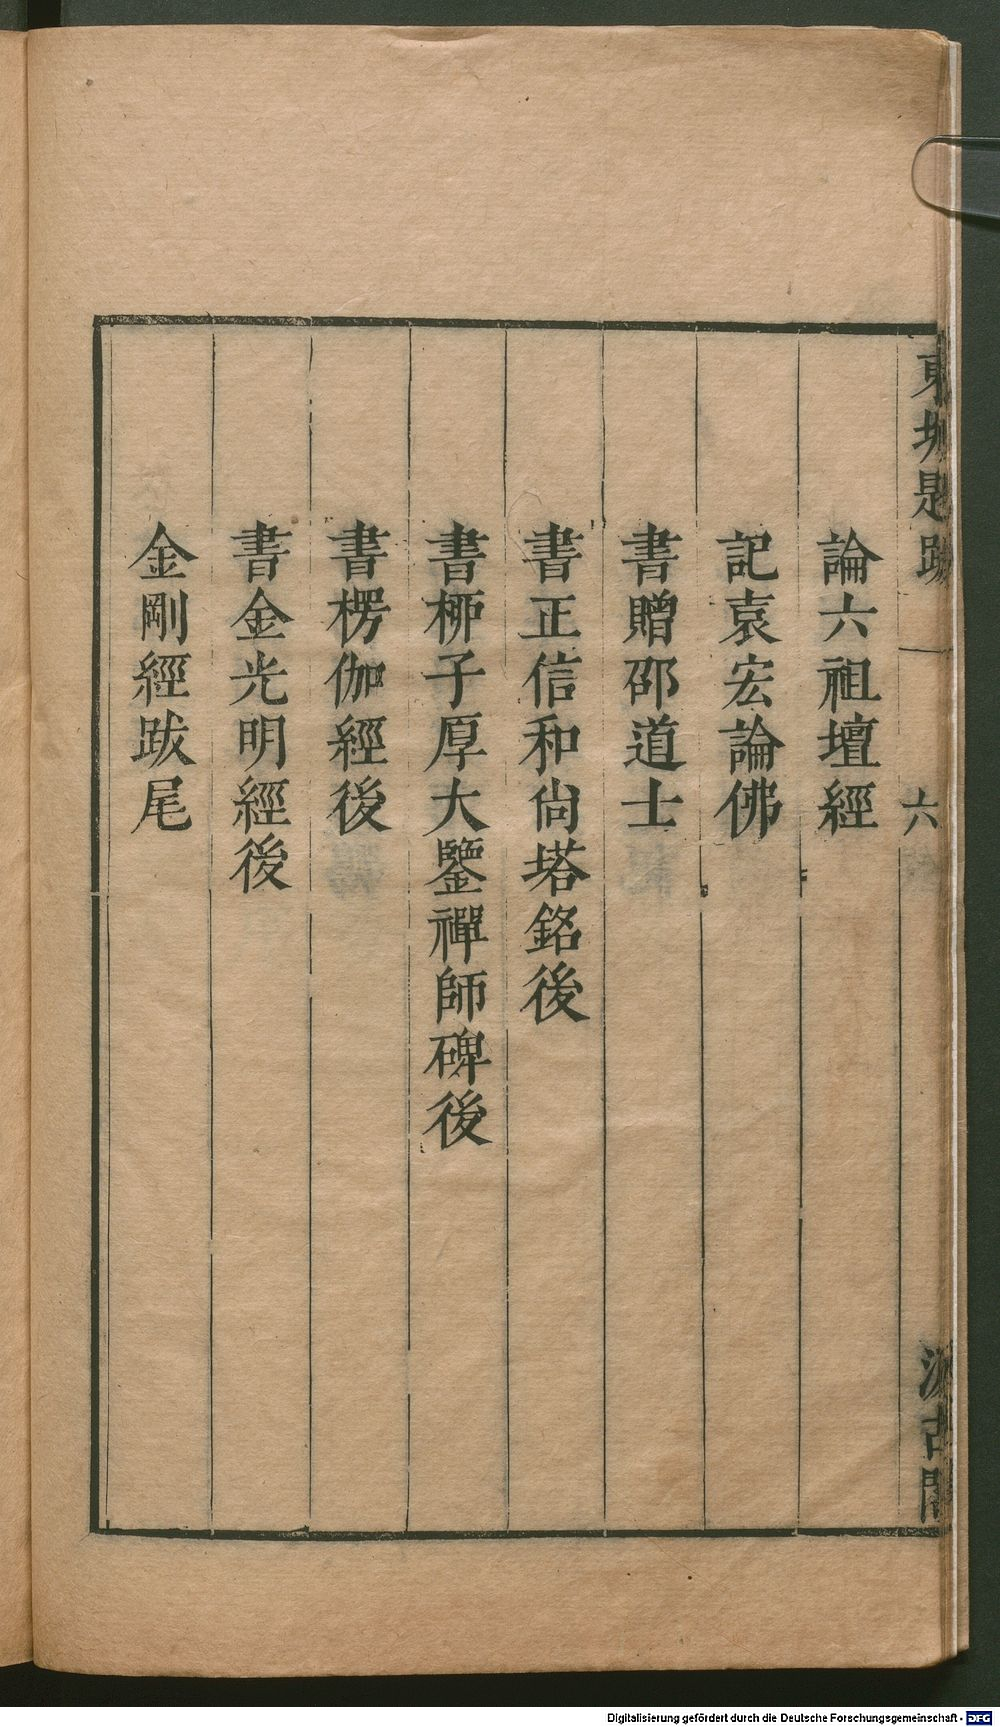 東坡題跋 一 六 汲古閣
論六祖壇經
記袁宏論佛
書贈邵道士
書正信和尙塔銘後
書栁子厚大鑒禪師碑後
書楞伽經後
書金光明經後
金剛經跋尾
Digitalisierung gefördert durch die Deutsche Forschungsgemeinschaft - DFG